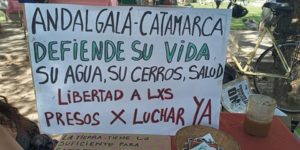 ANDALGALÁ-CATAMARCA
DEFIENDE SU VIDA,
SU AGUA, SU CERROS, SALUD
LIBERTAD A LXS
PRESOS X LUCHAR YA
LA TIERRA TIENE LO
SUFICIENTE PARA